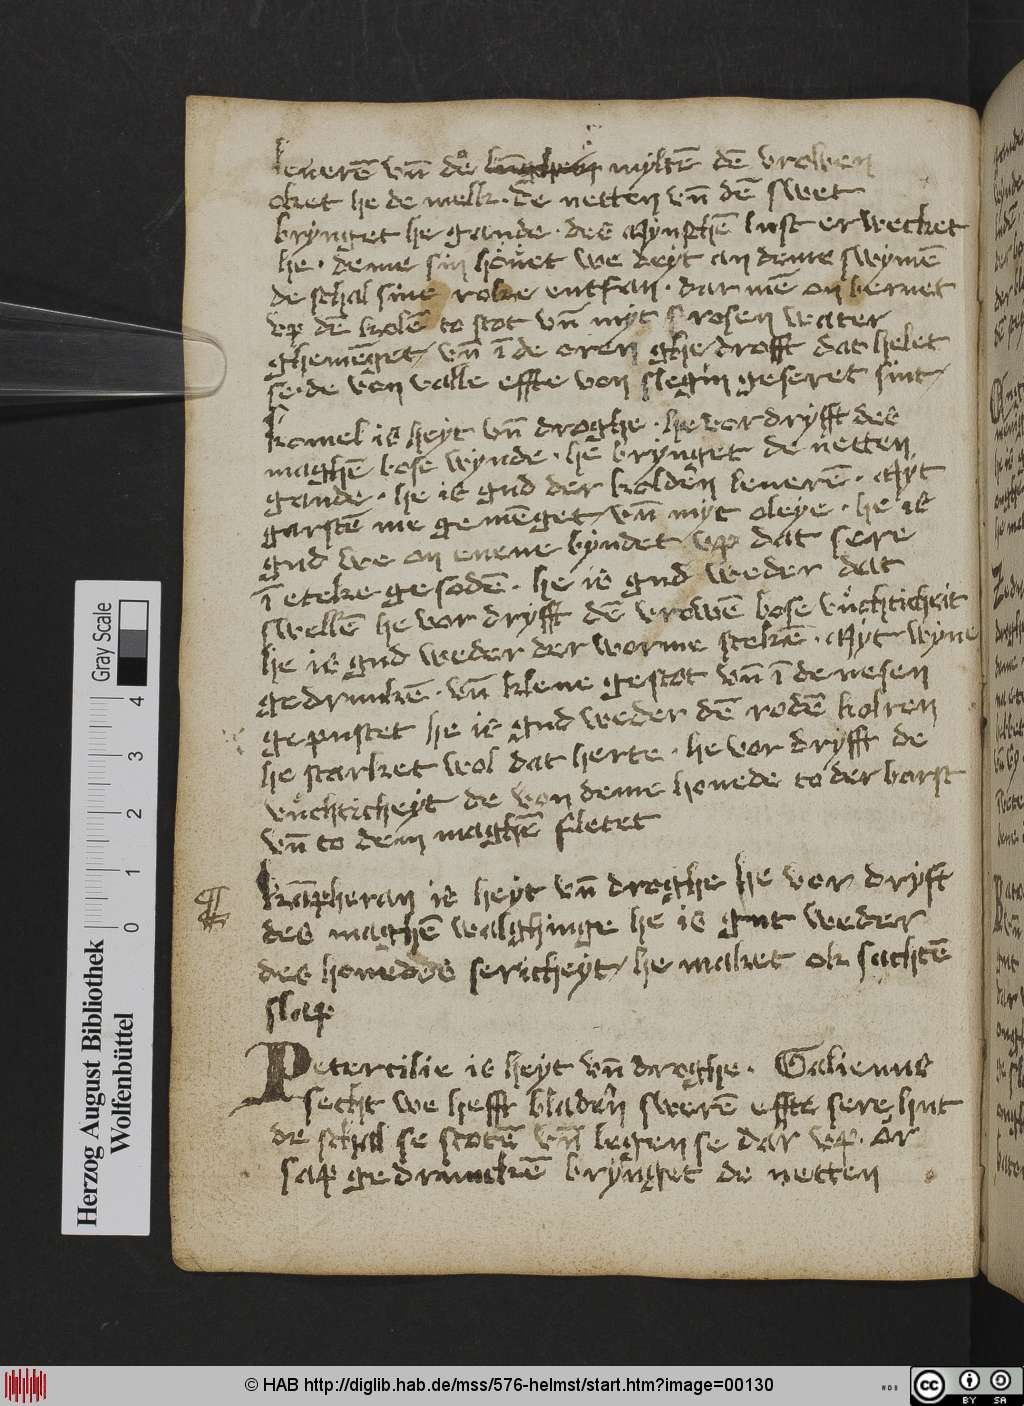 leuerē vn̄ deͤ myltē dē vrowen
oket he de melk · de netten vn̄ dē swet
brynget he gande · des mynschē lust erwecket
he · deme sin höuet we deyt an deme swymē
de schal sine roke entfan · dar mē on bernet
vp dē kolē to stot vn̄ myt rosen water
ghemēget / vn̄ ī de oren ghedrofft dat helet
se · de von valle effte von slegin geseret sint /
komel is heyt vn̄ droghe · he vordryfft des
maghē bose wynde · he brynget de netten
gande · he is gud der koldēn leuerē · Myt
garstē me gemēget / vn̄ myt oleye · he is
gud we on enene byndet vp dat sere
ī eteke gesodē · he is gud weder dat
swellē he vordryfft dē vrowē bose vuͤchticheit
he is gud weder der worme stekē · Myt wyne
gedrunkē · vn̄ klene gestot vn̄ ī de nesen
gepustet he is gud weder dē rodē kolren
he starket wol dat herte · he vordryfft de
vuͤchticheyt de von deme houede to der borst
vn̄ to dem maghē fletet
¶ kāpheran is heyt vn̄ droghe he vordryft
des maghē walghinge he is gut weder
des houedes sericheyt / he maket ok sachtē
slap
Petercilie is heyt vn̄ droghe · Galienus
secht we hefft bladern swerē effte sere hut
de schal se stotē vn̄ legen se dar vp · or
sap gedrunckē brynget de netten
Herzog August Bibliothek
Wolfenbüttel
Gray Scale
0 1 2 3 4
© HAB http://diglib.hab.de/mss/576-helmst/start.htm?image=00130
HAB
cc BY SA